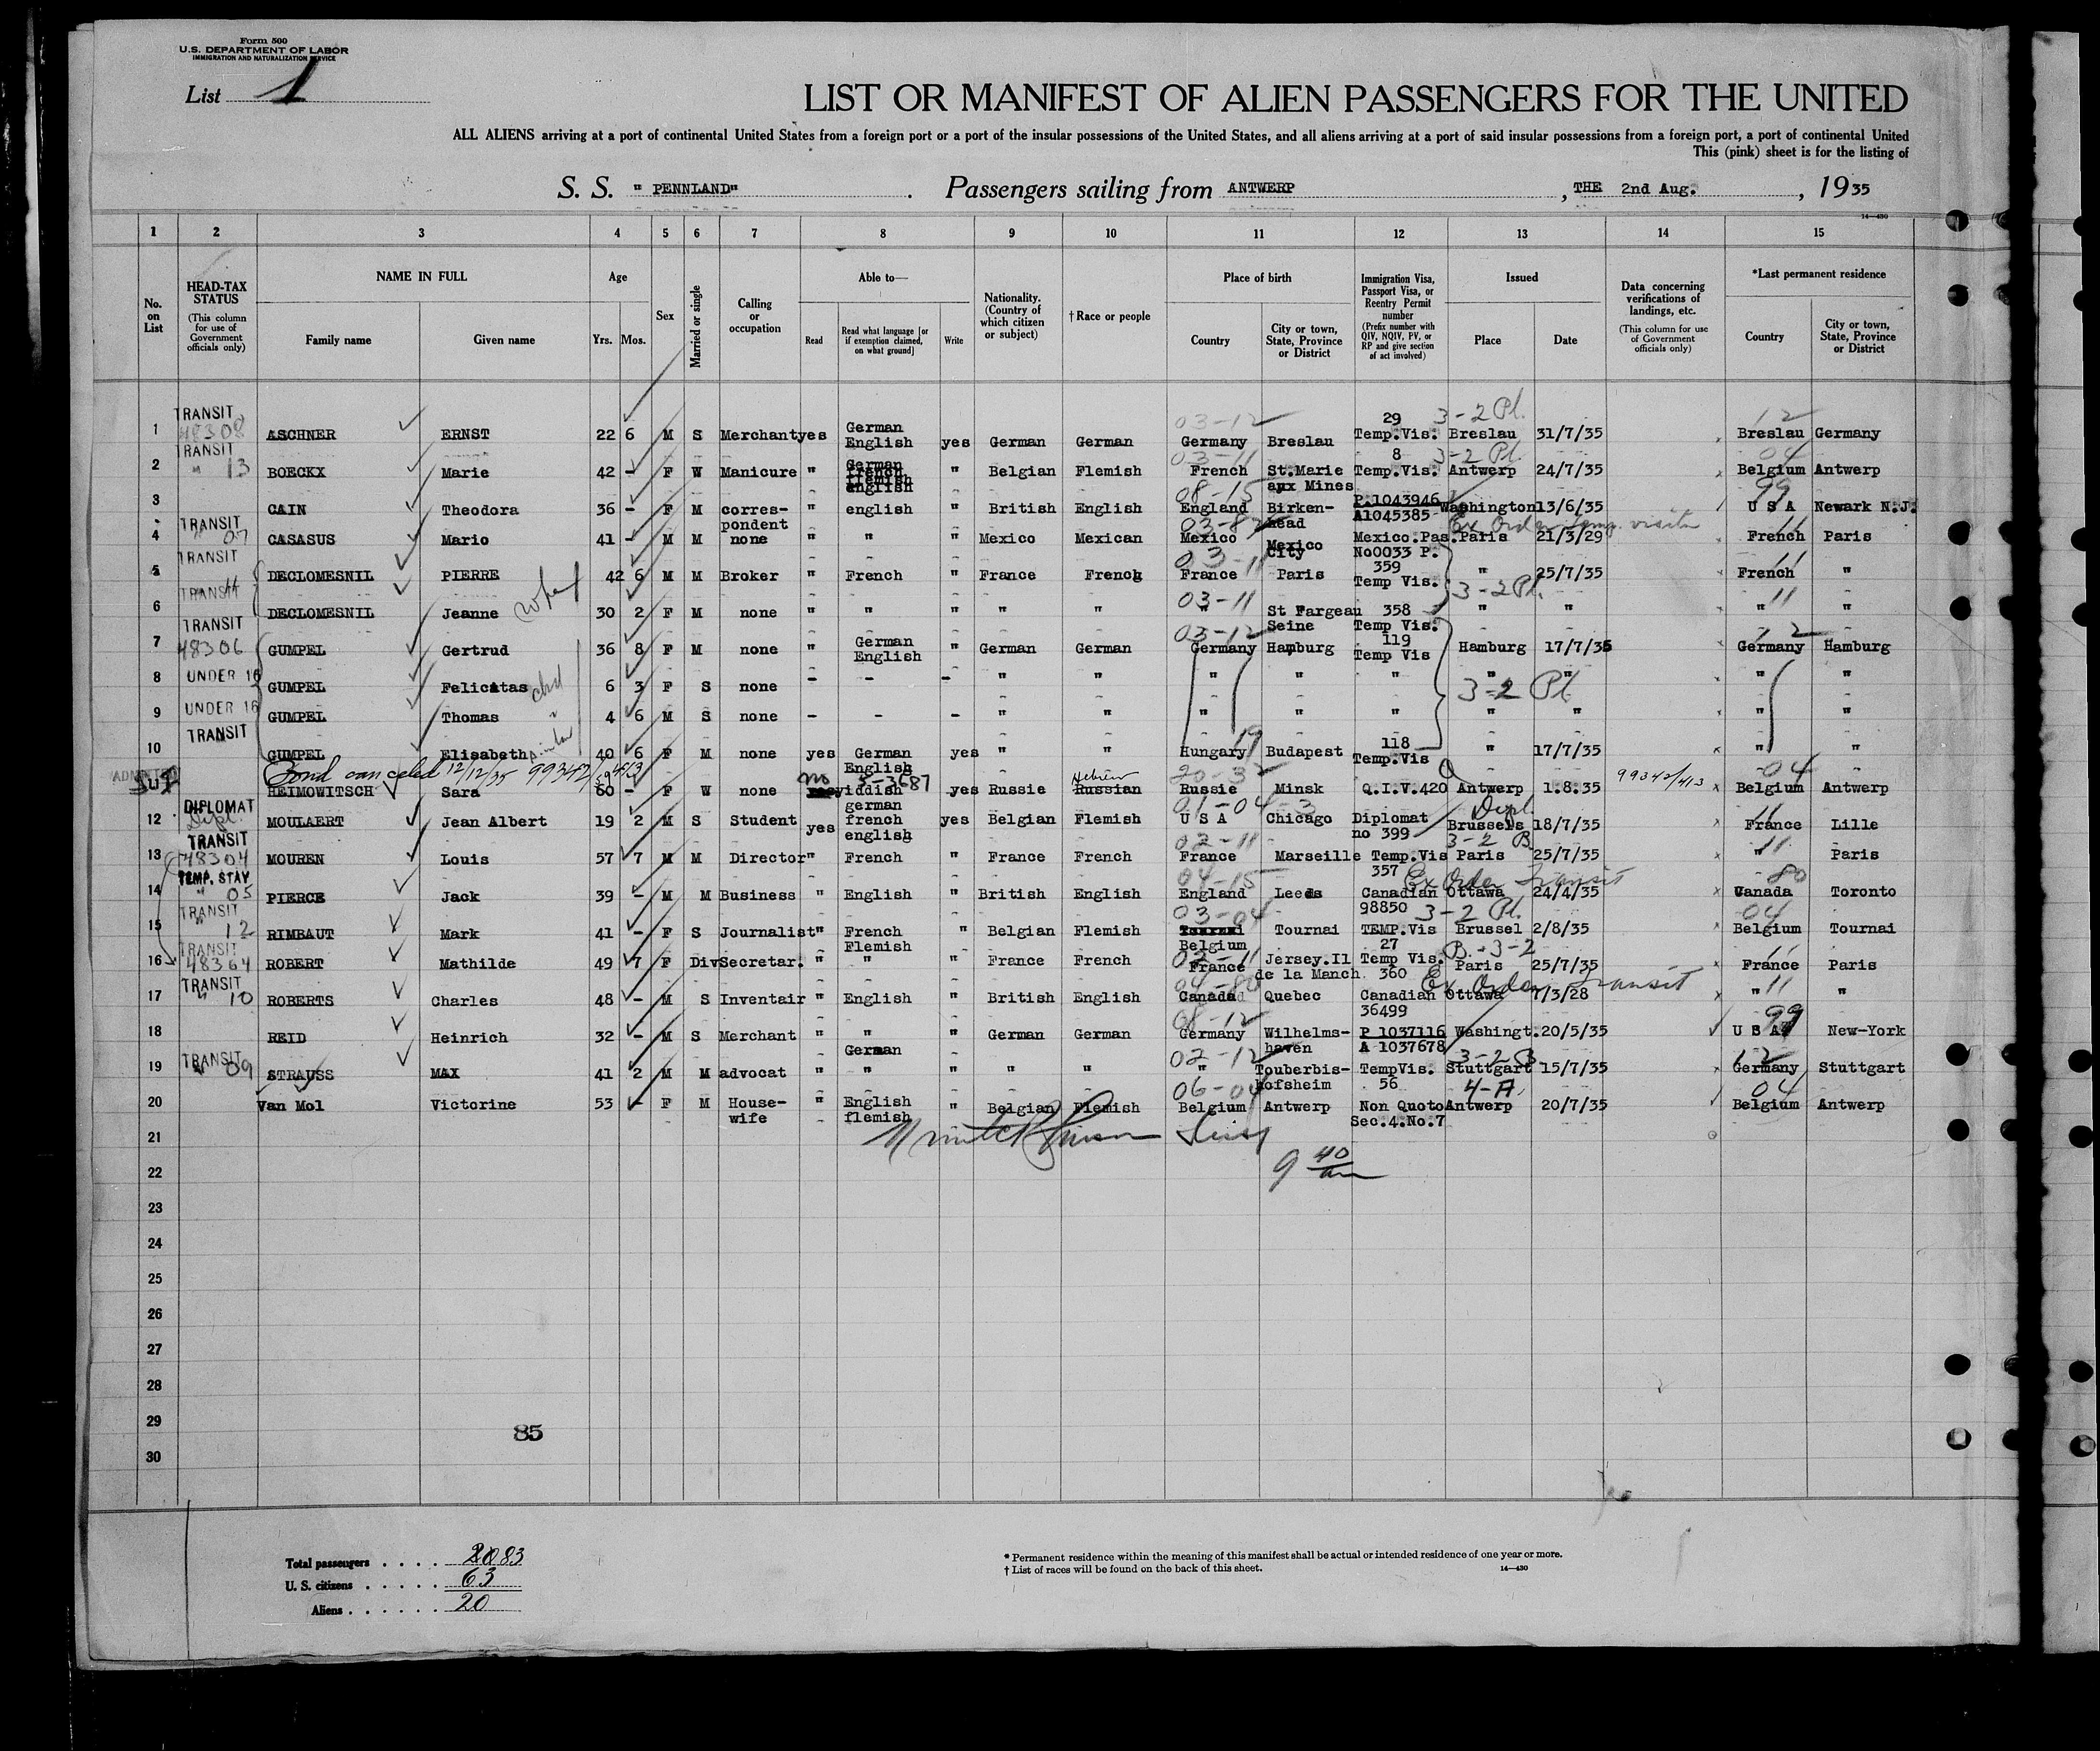 Form 500
U.S. DEPARTMENT OF LABOR
IMMIGRATION AND NATURALIZATION SERVICE
List 1
LIST OR MANIFEST OF ALIEN PASSENGERS FOR THE UNITED
ALL ALIENS arriving at a port of continental United States from a foreign port or a port of the insular possessions of the United States, and all aliens arriving at a port of said insular possessions from a foreign port, a port of continental United
This (pink) sheet is for the listing of
S. S. " PENNLAND" . Passengers sailing from ANTWERP , THE 2nd Aug. , 1935
14—430
1 2 3 4 5 6 7 8 9 10 11 12 13 14 15
No. on List
HEAD-TAX STATUS (This column for use of Government officials only)
NAME IN FULL Family name Given name
Age Yrs. Mos.
Sex
Married or single
Calling or occupation
Able to— Read Read what language [or if exemption claimed, on what ground] Write
Nationality. (Country of which citizen or subject)
†Race or people
Place of birth Country City or town, State, Province or District
Immigration Visa, Passport Visa, or Reentry Permit number (Prefix number with QIV, NQIV, PV, or RP and give section of act involved)
Issued Place Date
Data concerning verifications of landings, etc. (This column for use of Government officials only)
*Last permanent residence Country City or town, State, Province or District
TRANSIT 03-12 29 3-2 Pl. 12
1 48308 ASCHNER ERNST 22 6 M S Merchant yes German English yes German German Germany Breslau Temp.Vis. Breslau 31/7/35 Breslau Germany
TRANSIT 03-11 8 3-2 Pl. 04
2 " 13 BOECKX Marie 42 - F W Manicure " German french flemish english " Belgian Flemish French St.Marie aux Mines Temp.Vis. Antwerp 24/7/35 Belgium Antwerp
08-15 99
3 CAIN Theodora 36 - F M corres-pondent " english " British English England Birken-head P.1043946 A1045385 Washington 13/6/35 U S A Newark N.J.
TRANSIT 03-82 Ex Order temp. visitor 11
4 " 07 CASASUS Mario 41 - M M none " " " Mexico Mexican Mexico Mexico City Mexico.Pas. No0033 P. Paris 21/3/29 French Paris
TRANSIT 03-11 11
5 DECLOMESNIL PIERRE 42 6 M M Broker " French " France French France Paris 359 Temp Vis. " 25/7/35 French "
TRANSIT 11 03-11 3-2 Pl. 11
6 DECLOMESNIL Jeanne wife 30 2 F M none " " " " " " St Fargeau Seine 358 Temp Vis. " " " "
TRANSIT 03-12 12
7 48306 GUMPEL Gertrud 36 8 F M none " German English " German German Germany Hamburg 119 Temp Vis Hamburg 17/7/35 Germany Hamburg
8 UNDER 16 GUMPEL Felicitas chd 6 3 F S none - - - " " " " " " " " "
3-2 Pl
9 UNDER 16 GUMPEL Thomas " 4 6 M S none - - - " " " " " " " " "
TRANSIT 19
10 GUMPEL Elisabeth 40 6 F M none yes German English yes " " Hungary Budapest 118 Temp.Vis " 17/7/35 " "
Bond canceled 12/12/35 99342/413
ADMITTED no 5-3687 Hebrew 20-32 99342/413 04
HEIMOWITSCH Sara 60 - F W none yiddish yes Russie Russian Russie Minsk Q.I.V.420 Antwerp 1.8.35 Belgium Antwerp
DIPLOMAT 01-04-3 Dipl. 11
12 Dipl. MOULAERT Jean Albert 19 2 M S Student yes german french english yes Belgian Flemish U S A Chicago Diplomat no 399 Brussels 18/7/35 France Lille
TRANSIT 02-11 3-2 B. 11
13 48304 MOUREN Louis 57 7 M M Director " French " France French France Marseille Temp.Vis 357 Paris 25/7/35 " Paris
TEMP. STAY 04-15 Ex Order Transit 80
14 " 05 PIERCE Jack 39 - M M Business " English " British English England Leeds Canadian 98850 Ottawa 24/4/35 Canada Toronto
TRANSIT 03-04 3-2 Pl. 04
15 " 12 RIMBAUT Mark 41 - F S Journalist " French Flemish " Belgian Flemish Belgium Tournai TEMP.Vis 27 Brussel 2/8/35 Belgium Tournai
TRANSIT 02-11 B.-3-2 11
16 48364 ROBERT Mathilde 49 7 F Div Secretar. " " " France French France Jersey.Il de la Manch Temp Vis. 360 Paris 25/7/35 France Paris
TRANSIT 04-80 Ex Order Transit
17 " 10 ROBERTS Charles 48 - M S Inventair " English " British English Canada Quebec Canadian 36499 Ottawa 7/3/28 " 11 "
08-12 99
18 REID Heinrich 32 - M S Merchant " " German " German German Germany Wilhelms-haven P 1037116 A 1037678 Washingt. 20/5/35 U S A New-York
TRANSIT 02-12 3-2 B 12
19 " 09 STRAUSS MAX 41 2 M M advocat " " " " " " Touberbis-hofsheim TempVis. 56 Stuttgart 15/7/35 Germany Stuttgart
06-04 4-A 04
20 Van Mol Victorine 53 - F M House-wife " English flemish " Belgian Flemish Belgium Antwerp Non Quoto Sec.4.No.7 Antwerp 20/7/35 Belgium Antwerp
21
9 40 am
22
23
24
25
26
27
28
29
85
30
Total passengers . . . . 83
U. S. citizens . . . . . 63
Aliens . . . . . . 20
* Permanent residence within the meaning of this manifest shall be actual or intended residence of one year or more.
† List of races will be found on the back of this sheet.
14—430